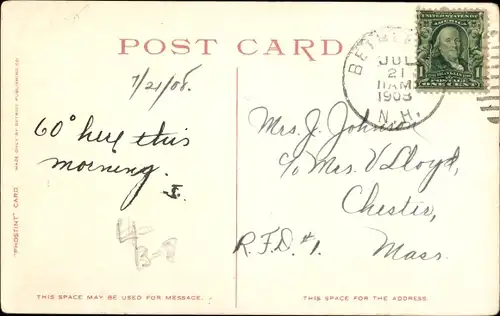 POST CARD
7/21/08.
60° here this
morning.
J.
4-
B-8
MADE ONLY BY DETROIT PUBLISHING CO.
"PHOSTINT" CARD
THIS SPACE MAY BE USED FOR MESSAGE.
JUL
21
11AM
1908
N.H.
UNITED STATES OF AMERICA
1 1
FRANKLIN
POSTAGE
ONE CENT
Mrs. J. Johnson
c/o Mrs. V Lloyd,
Chester,
R.F.D. #1. Mass.
THIS SPACE IS FOR THE ADDRESS.